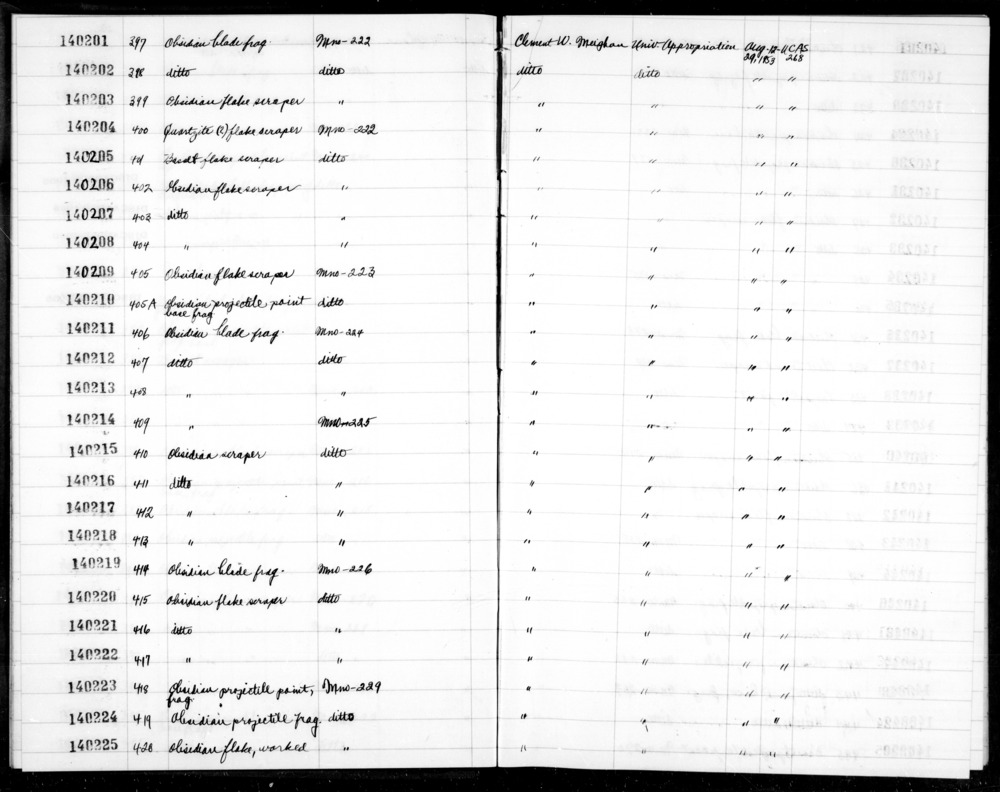 140201 397 Obsidian blade frag. Mno-222 Clement W. Meighan Univ. Appropriation Aug. 12- UCAS
29, 1953 268
140202 398 ditto ditto ditto ditto " "
140203 399 Obsidian flake scraper " " " " "
140204 400 Quartzite (?) flake scraper Mno-222 " " " "
140205 401 Basalt flake scraper ditto " " " "
140206 402 Obsidian flake scraper " " " " "
140207 403 ditto " " " " "
140208 404 " " " " " "
140209 405 Obsidian flake scraper Mno-223 " " " "
140210 405A Obsidian projectile point ditto " " " "
base frag.
140211 406 Obsidian blade frag. Mno-224 " " " "
140212 407 ditto ditto " " " "
140213 408 " " " " " "
140214 409 " Mno-225 " " " "
140215 410 Obsidian scraper ditto " " " "
140216 411 ditto " " " " "
140217 412 " " " " " "
140218 413 " " " " " "
140219 414 Obsidian blade frag. Mno-226 " " " "
140220 415 Obsidian flake scraper ditto " " " "
140221 416 ditto " " " " "
140222 417 " " " " " "
140223 418 Obsidian projectile point, Mno-229 " " " "
frag.
140224 419 Obsidian projectile frag. ditto " " " "
140225 420 Obsidian flake, worked " " " " "